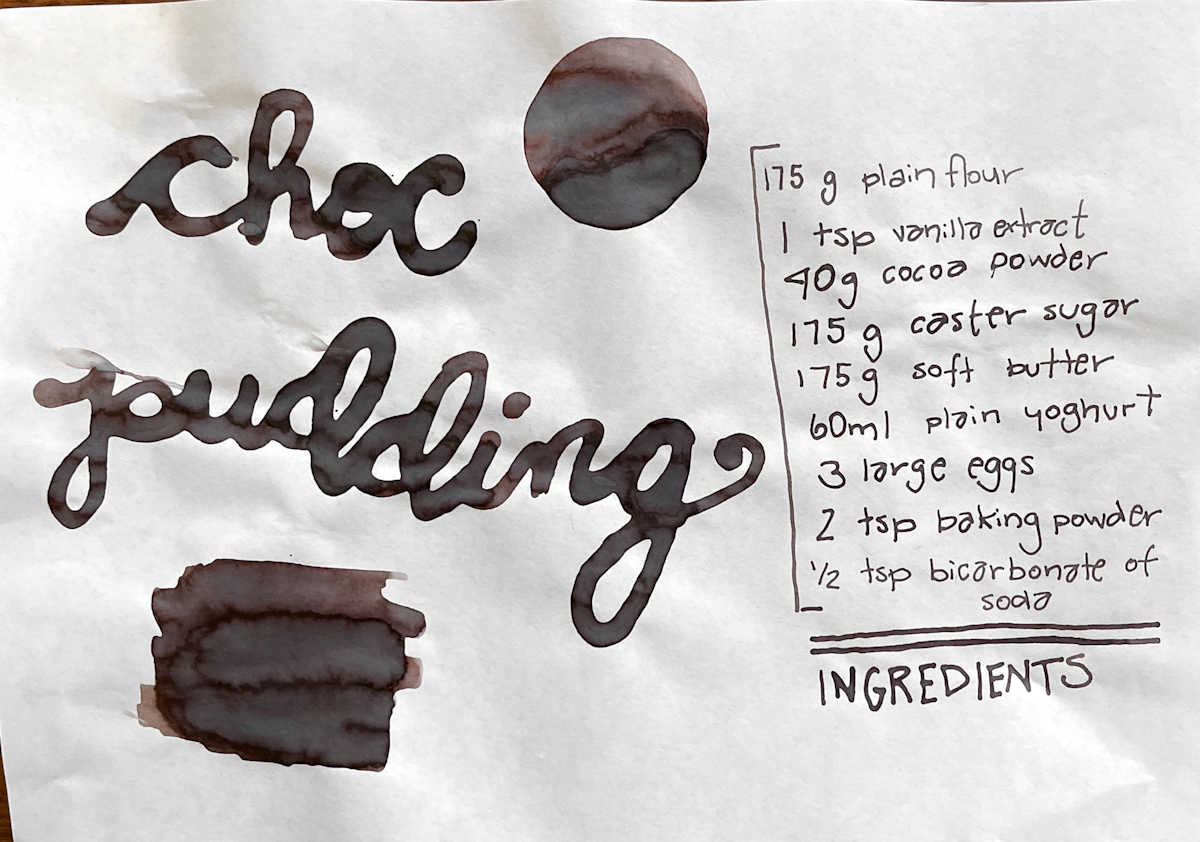 choc
pudding
175 g plain flour
1 tsp vanilla extract
40g cocoa powder
175 g caster sugar
175g soft butter
60ml plain yoghurt
3 large eggs
2 tsp baking powder
1/2 tsp bicarbonate of
soda
INGREDIENTS